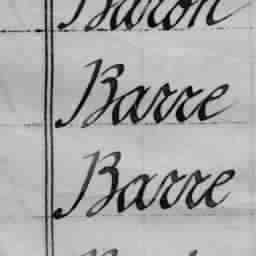 Baron
Barre
Barre